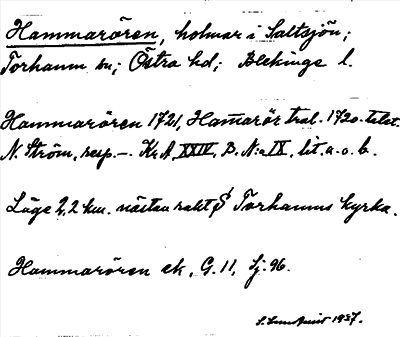 Hammarören, holmar i Saltsjön;
Torhamn sn; Östra hd; Blekinge l.
Hammarören 1721, Hamarör tral. 1720-talet.
N. Ström, resp. -. Kr. A. XXIV, B. N:o IX, lit. a. o. b.
Läge 2,2 km. nästan rakt S Torhamns kyrka.
Hammarören ek, G. 11, Sj. 96.
1937.